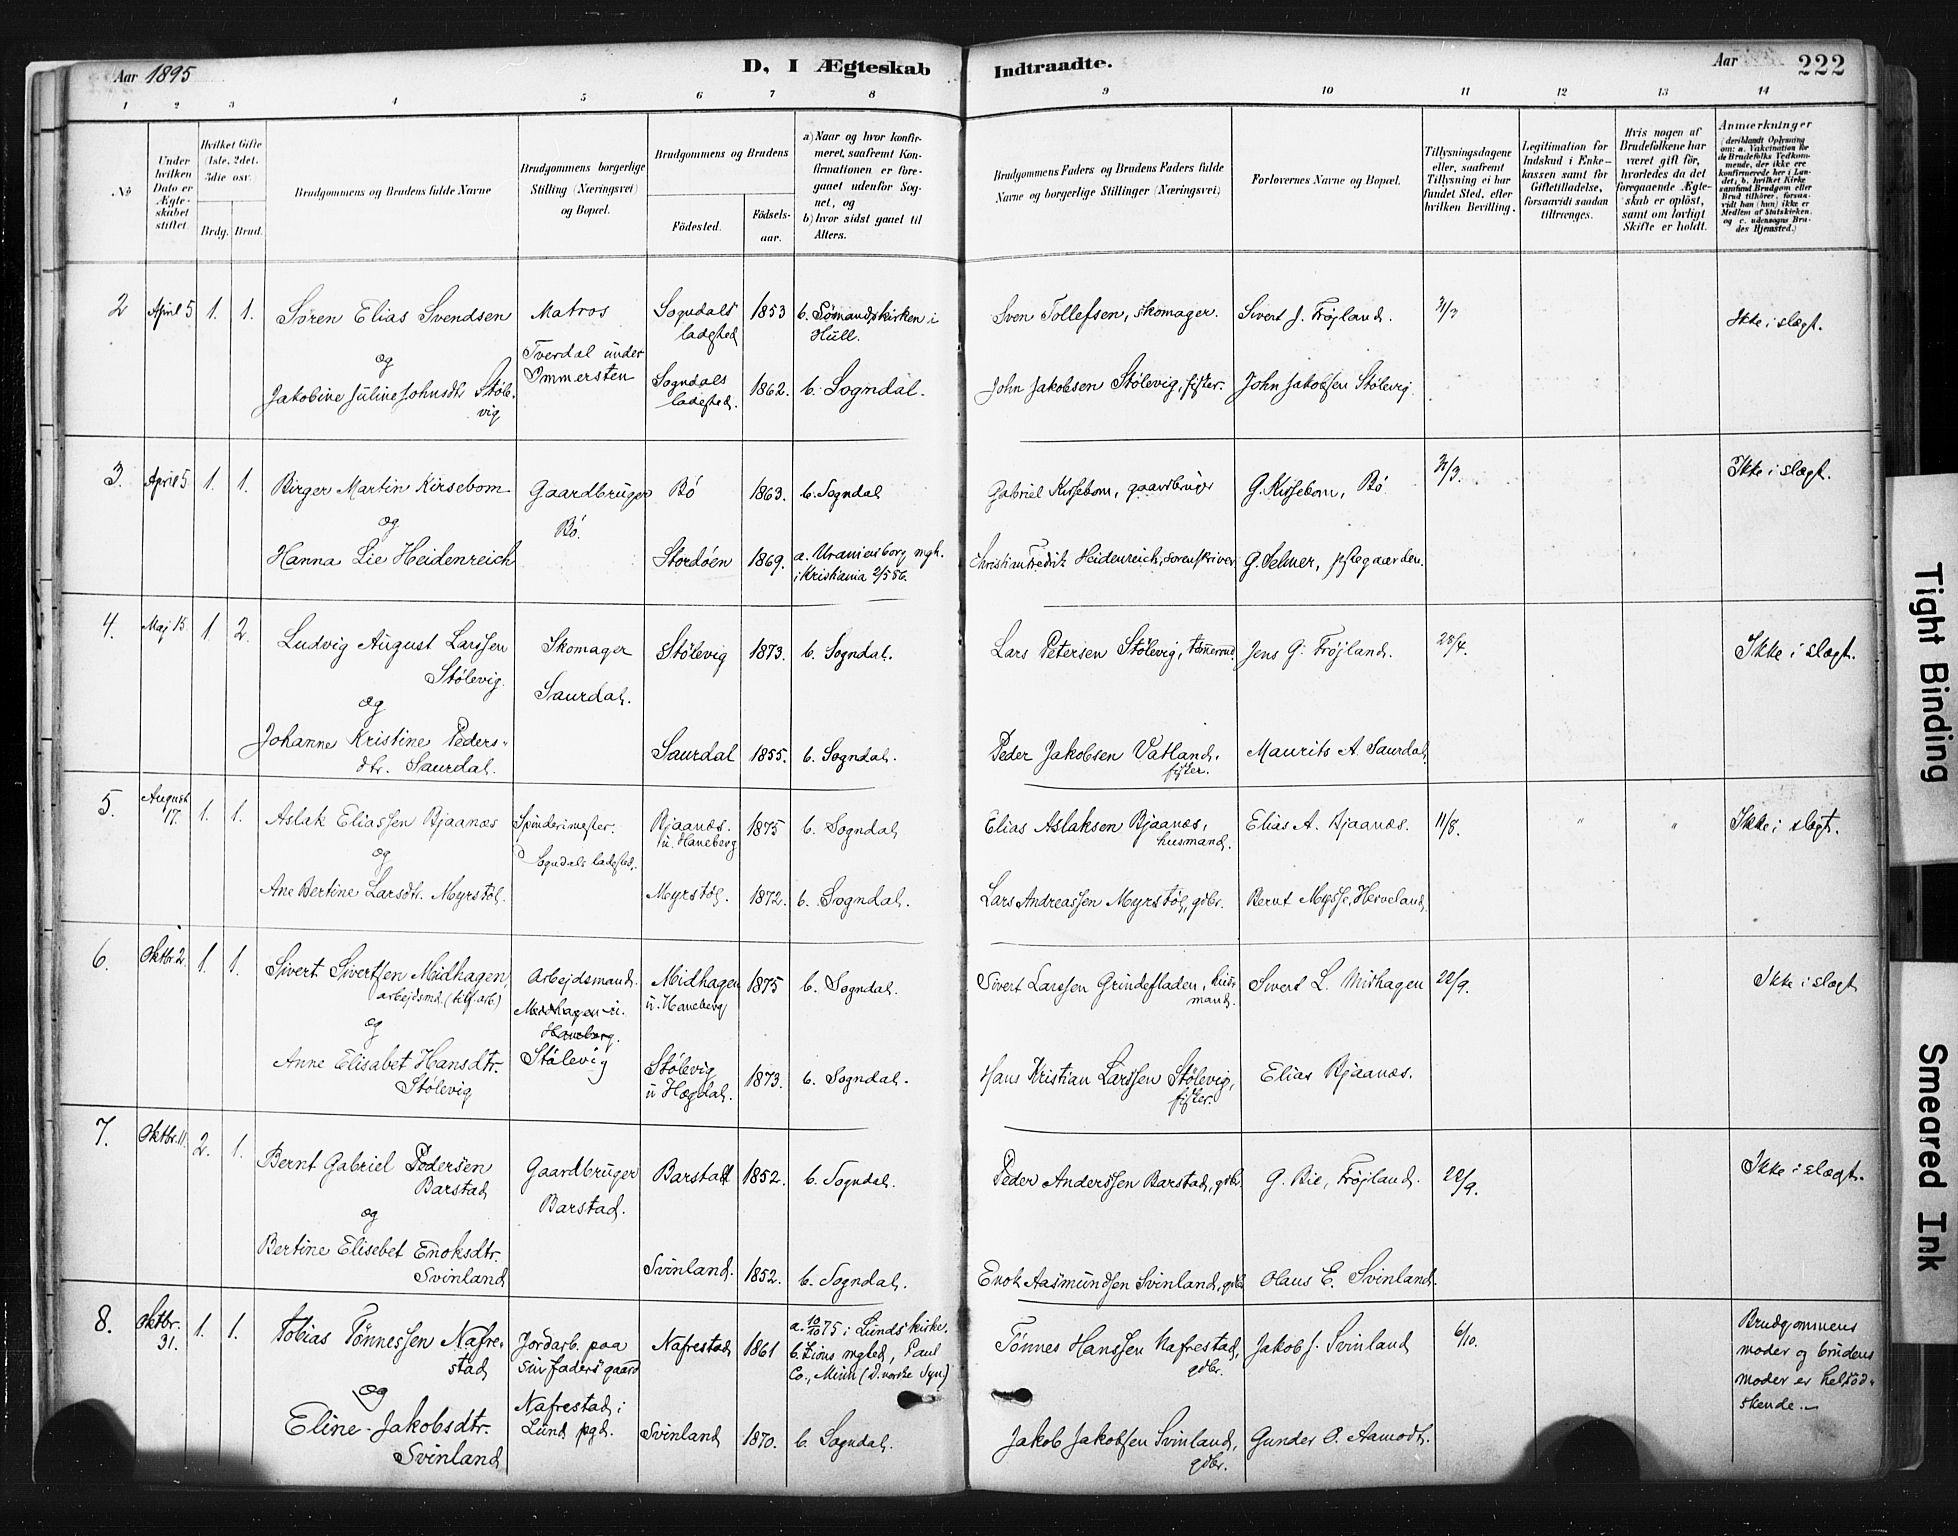 Aar 1895
D, I Ægteskab
Indtraadte.
Aar
222
1 2 3 4 5 6 7 8 9 10 11 12 13 14
No
Under hvilken Dato er Ægteskabet stiftet
Hvilket Gifte (1ste, 2det, 3die osv.)
Brdg. Brud.
Brudgommens og Brudens fulde Navne
Brudgommens borgerlige Stilling (Næringsvei) og Bopæl.
Brudgommens og Brudens
Fødested.
Fødselsaar.
a) Naar og hvor konfirmeret, saafremt Konfirmationen er foregaaet udenfor Sognet, og
b) hvor sidst gaaet til Alters.
Brudgommens Faders og Brudens Faders fulde Navne og borgerlige Stillinger (Næringsvei)
Forlovernes Navne og Bopæl.
Tillysningsdagene eller, saafremt Tillysning ei har fundet Sted, efter hvilken Bevilling.
Legitimation for Indskud i Enkekassen samt for Giftetilladelse, forsaavidt saadan tiltrænges.
Hvis nogen af Brudefolkene har været gift før, hvorledes da det foregaaende Ægteskab er opløst, samt om lovligt Skifte er holdt.
Anmærkninger
(deriblandt Oplysning om: a. Vakcination for de Brudefolks Vedkommende, der ikke ere konfirmerede her i Landet, b. hvilket Kirkesamfund Brudgom eller Brud tilhører, forsaavidt han (hun) ikke er Medlem af Statskirken, og c. udensogns Brudes Hjemsted.)
2 April 5 1. 1. Søren Elias Svendsen
og
Jakobine Juline Johnsdtr Stølevig
Matros
Tverdal under
Ommersten
Sogndals ladested 1853 b. Sømandskirken i Hull.
Sogndals ladested. 1862. b. Sogndal.
Sven Tollefsen, skomager. Sivert J. Frøjland. 31/3 Ikke i slægt.
John Jakobsen Stølevig, fisker. John Jakobsen Stølevig
3. April 5 1. 1. Birger Martin Kirsebom
og
Hanna Lie Heidenreich
Gaardbruger
Bø.
Bø 1863. b. Sogndal
Stordøen 1869. a. Uranienborg mgh. i Kristiania 2/5 86.
Gabriel Kirsebom, gaardbruger G. Kirsebom, Bø 31/3. Ikke i slægt.
Christian Fredrik Heidenreich, sorenskriver G. Selmer, prestegaarden.
4. Maj 15. 1 2. Ludvig August Larssen
Stølevig.
og
Johanne Kristine Pedersdtr. Saurdal.
Skomager
Saurdal.
Stølevig 1873. b. Sogndal.
Saurdal 1855. b. Sogndal.
Lars Petersen Stølevig, tømmermd. Jens G. Frøjland. 28/4. Ikke i slægt.
Peder Jakobsen Vatland, fisker. Maurits A. Saurdal.
5. August 17. 1. 1. Aslak Eliassen Bjaanæs
og
Ane Bertine Larsdtr. Myrstøl.
Spinderimester.
Sogndals ladested.
Bjaanæs. u. Haneberg 1875 b. Sogndal
Myrstøl. 1872. b. Sogndal.
Elias Aslaksen Bjaanæs, husmand. Elias A. Bjaanæs. 11/8. " " Ikke i slægt.
Lars Andreassen Myrstøl, gdbr. Bernt Mysse, Herveland.
6. Oktbr. 2. 1. 1. Sivert Sivertsen Midhagen,
arbejdsmd. (tilf. arb.)
og
Anne Elisabet Hansdtr.
Stølevig
Arbejdsmand.
Midhagen u.
Haneberg.
Stølevig
Midhagen u. Haneberg 1875 b. Sogndal.
Stølevig u Hægdal. 1873. b. Sogndal.
Sivert Larssen Grindefladen, husmand. Sivert L. Midhagen 22/9. Ikke i slægt
Hans Kristian Larssen Stølevig, fisker. Elias Bjaanæs.
7. Oktbr. 11. 2. 1. Bernt Gabriel Pedersen
Barstad
og
Bertine Elisebet Enoksdtr.
Svinland
Gaardbruger
Barstad.
Barstad 1852. b. Sogndal.
Svinland. 1852. b. Sogndal.
Peder Anderssen Barstad, gdbr. G. Bie, Frøjland. 22/9. Ikke i slægt.
Enok Aasmundsen Svinland, gdbr. Olaus E. Svinland.
8. Oktbr. 31. 1. 1. Tobias Tønnessen Nafrestad
og
Eline Jakobsdtr.
Svinland
Jordarb. paa
sin faders gaard
Nafrestad i
Lund pgd.
Nafrestad 1861 a. 10/10 75 i Lunds kirke.
b. Lions mghed, Paul
Co., Minn (D. norske Syn.)
Svinland 1870. b. Sogndal.
Tønnes Hanssen Nafrestad, gdbr. Jakob J. Svinland 6/10. Brudgommens
moder og brudens
moder er helsødskende.
Jakob Jakobsen Svinland, gdbr. Gunder O. Aamodt.
Tight Binding
Smeared Ink